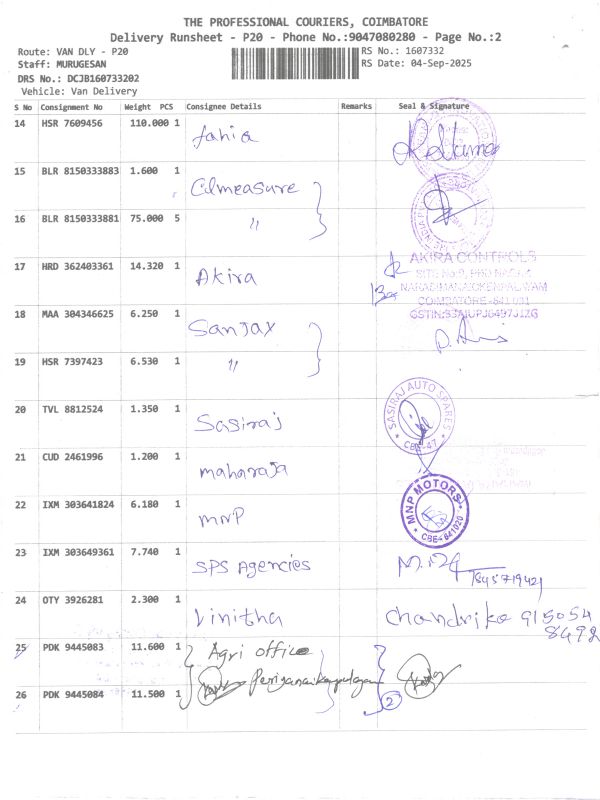 THE PROFESSIONAL COURIERS, COIMBATORE
Delivery Runsheet - P20 - Phone No.:9047080280 - Page No.:2
Route: VAN DLY - P20
RS No.: 1607332
Staff: MURUGESAN
RS Date: 04-Sep-2025
DRS No.: DCJB160733202
Vehicle: Van Delivery
S No Consignment No Weight PCS Consignee Details Remarks Seal & Signature
14 HSR 7609456 110.000 1
15 BLR 8150333883 1.600 1
16 BLR 8150333881 75.000 5 "
17 HRD 362403361 14.320 1 Akira
AKIRA CONTROLS
COIMBATORE-641 031
18 MAA 304346625 6.250 1 Sanjay
19 HSR 7397423 6.530 1 "
20 TVL 8812524 1.350 1 Sasiraj
SASIRAJ AUTO SPARES
CBE-41
21 CUD 2461996 1.200 1 maharaja
22 IXM 303641824 6.180 1 MNP
MNP MOTORS
CBE-641020
23 IXM 303649361 7.740 1 SPS Agencies
24 OTY 3926281 2.300 1 Vinitha Chandrika 915054
8492
25 PDK 9445083 11.600 1 Agri office
26 PDK 9445084 11.500 1 2